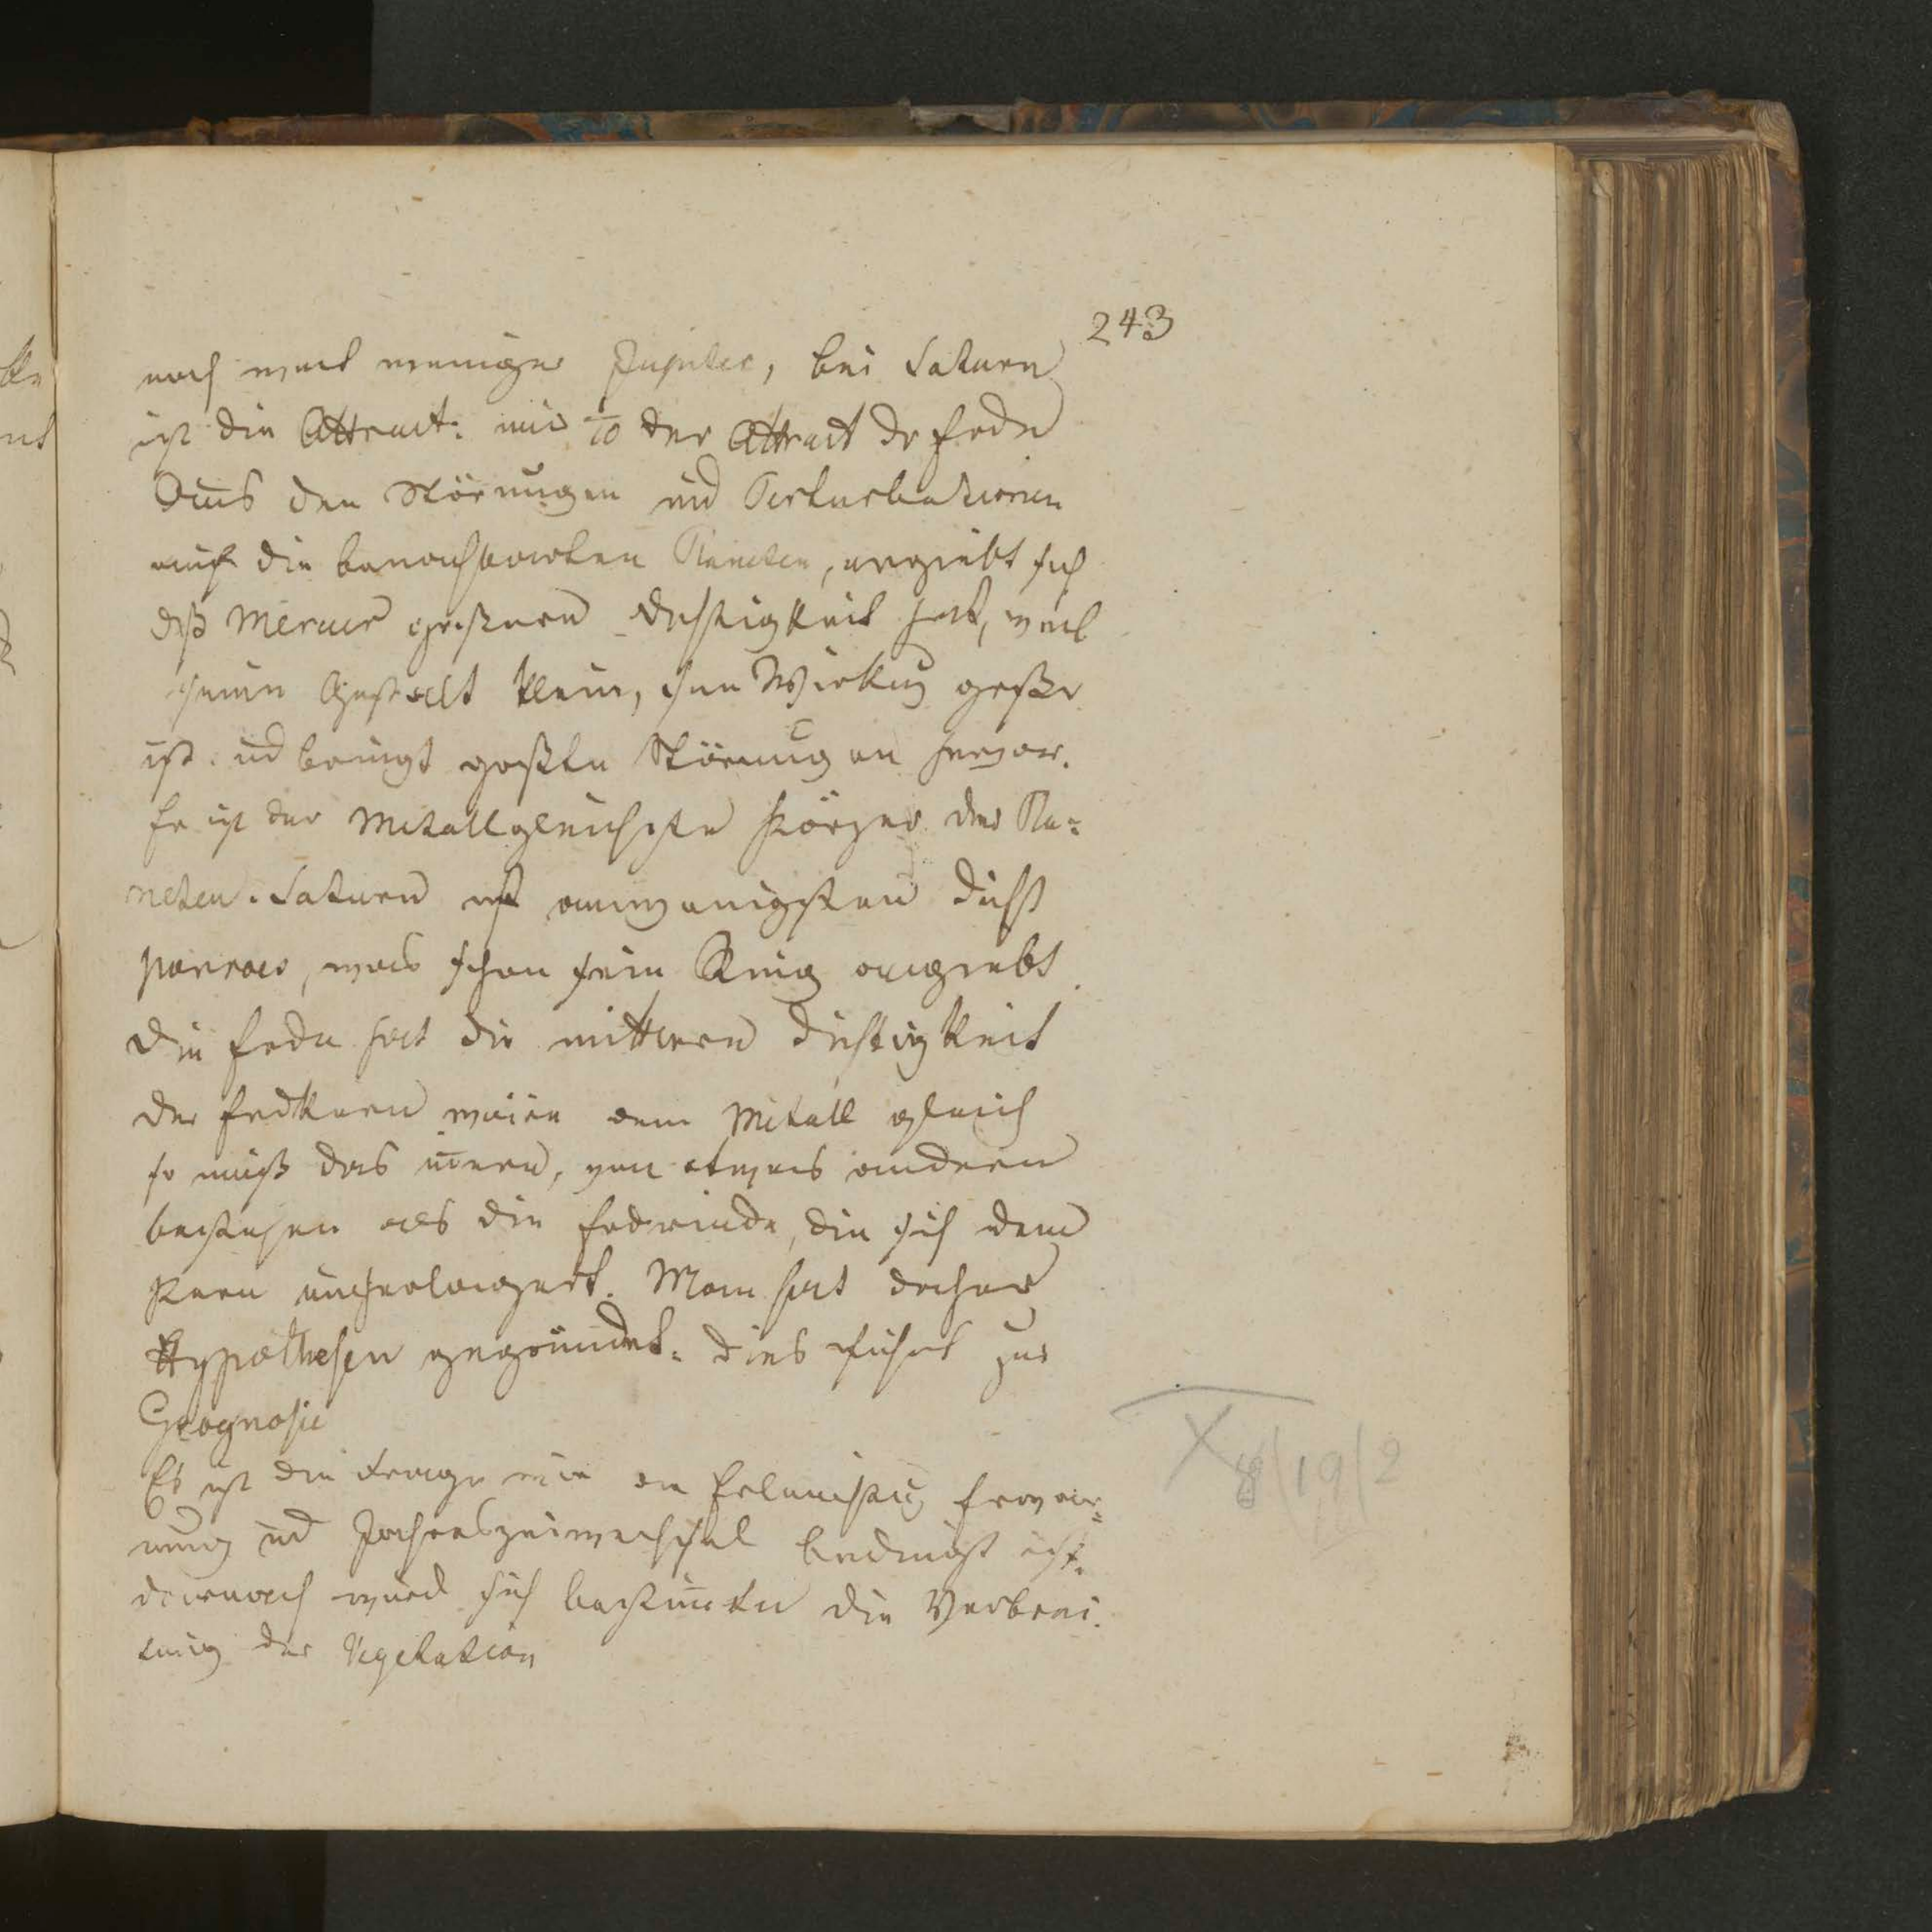 243
noch weit weniger Jupiter, bei Saturn
ist die Attract: nur 1/10 der Attract der Erde
Aus den Störungen und Perturbationen
auf die benachbarten Planeten, ergiebt sich
daß Mercur grössere Dichtigkeit hat, weil
seine Gestalt klein, seine Wirkung größer
ist. und bringt größte Störungen hervor.
Er ist der Metallgleichste Körper der Pla=
neten. Saturn ist am wenigsten dicht
poröser, was schon sein Ring angiebt.
Die Erde hat die mittlere Dichtigkeit
der Erdkern wäre dem Metall gleich
so muß das innere, von etwas anderem
bestehen als die Erdrinde, die sich dem
Kern umherlagert. Man hat daher
Hypothesen gegründet. dies führt zur
Geognosie
Es ist die Frage wie die Erleuchtung Erwär=
mung und Jahreszeitwechsel bedingt ist.
darnach wird sich bestimmen die Verbrei.
tung der Vegetation
8/19/2